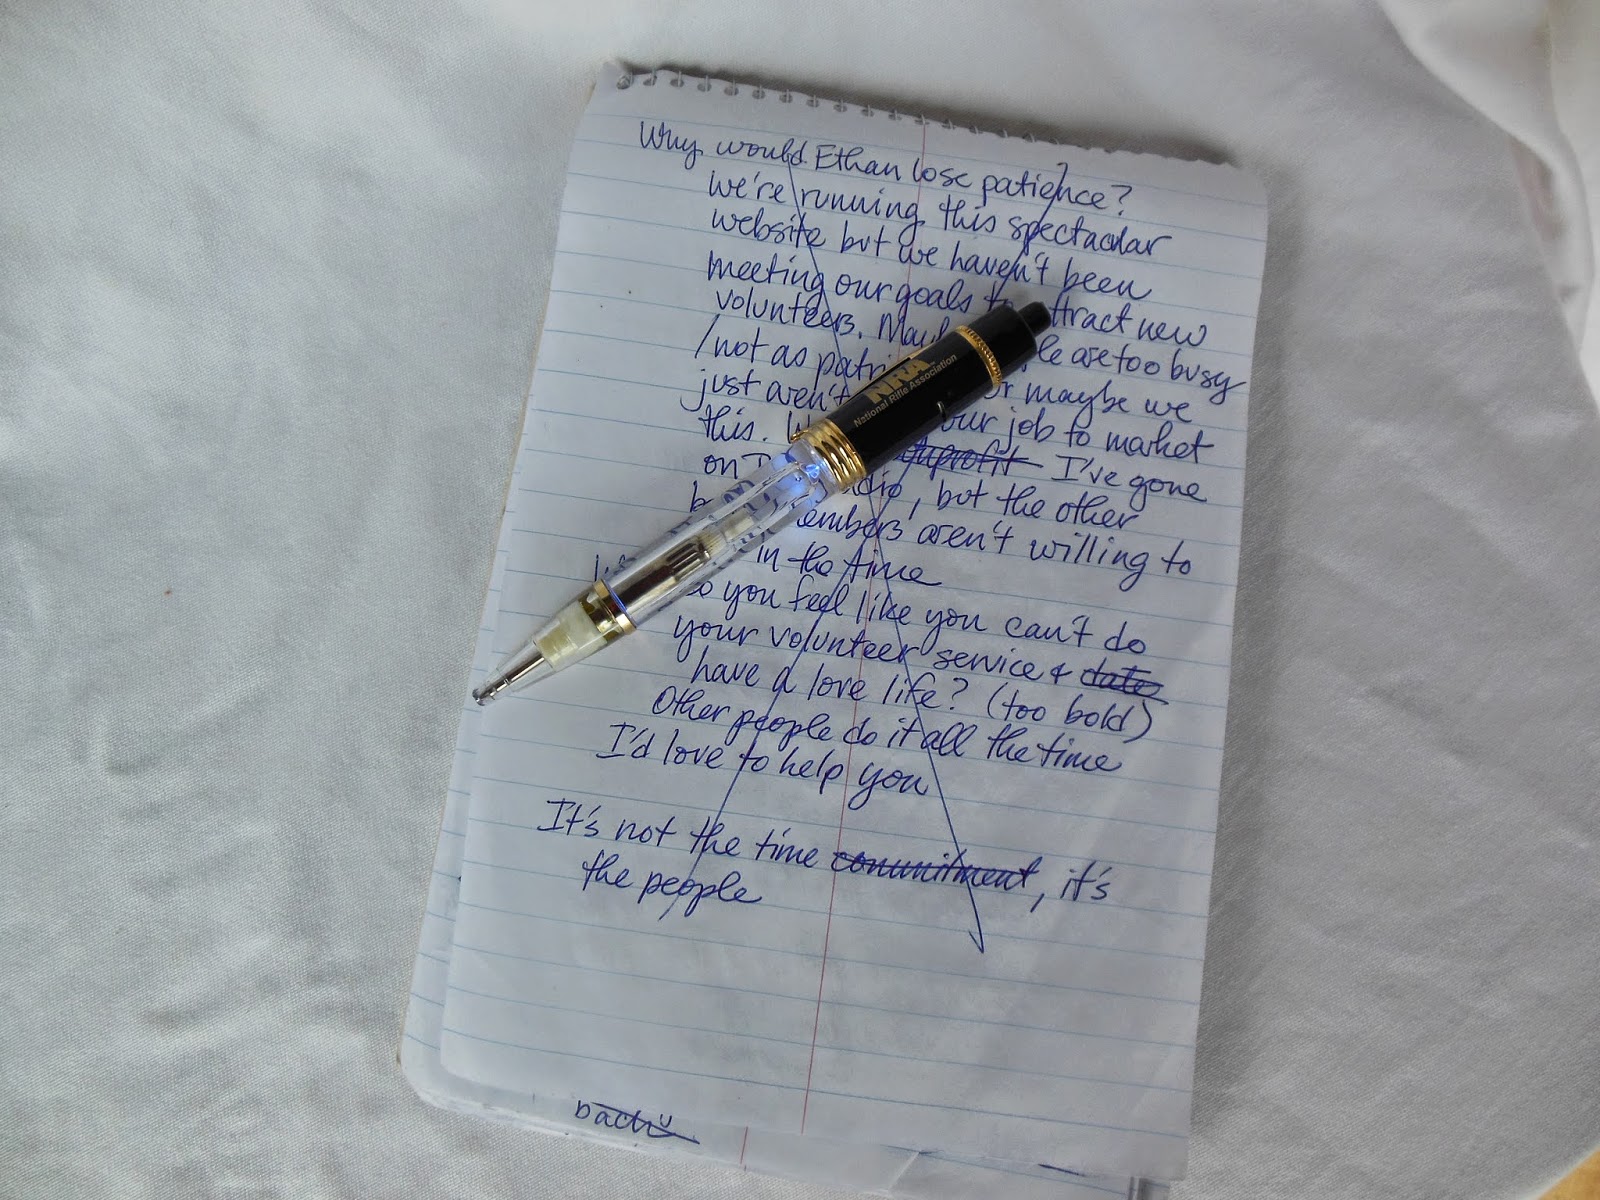 Why would Ethan lose patience?
We're running this spectacular
website but we haven't been
meeting our goals ttract new
volunteers. le are too busy
/not as or maybe we
just aren't our job to market
this. nprofit I've gone
on dio, but the other
embers aren't willing to
in the time
o you feel like you can't do
your volunteer service & dates
have a love life? (too bold)
Other people do it all the time
I'd love to help you
It's not the time commitment, it's
the people
NRA
National Rifle Association